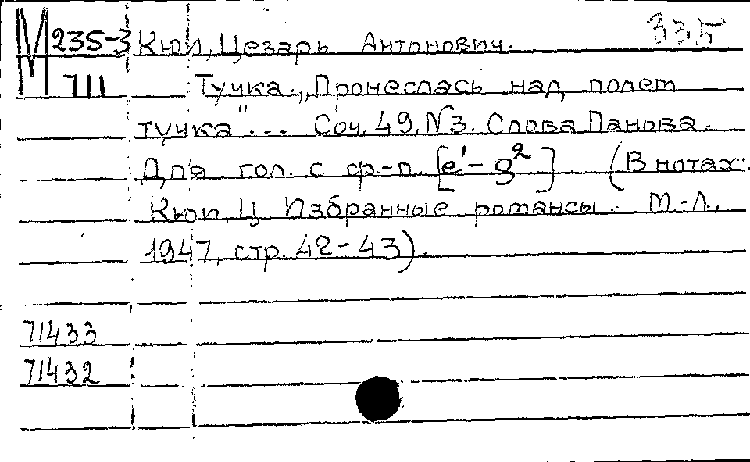 М 235-3 Кюи, Цезарь Антонович. 335
711 Тучка. „Пронеслась над полем
тучка"... Соч. 49, N3. Слова Панова.
Для гол. с ф-п. [e¹-g²] (В нотах:
Кюи Ц. Избранные романсы. М.-Л.,
1947, стр. 42-43).
71433
71432